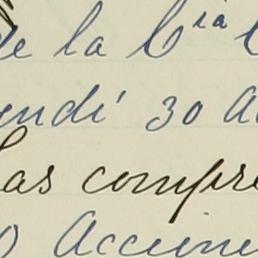 de la Cia
endí 30 A
las compre
Accione